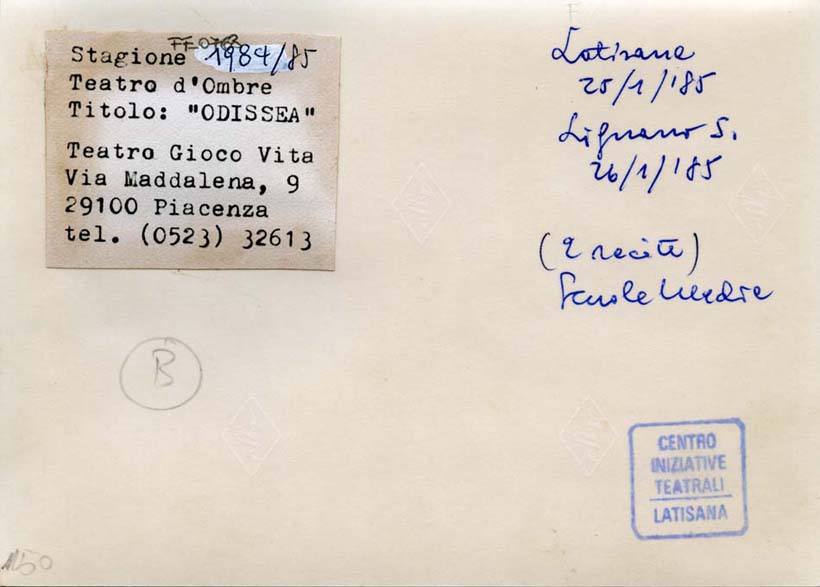 Stagione 1984/85
Teatro d'Ombre
Titolo: "ODISSEA"
Teatro Gioco Vita
Via Maddalena, 9
29100 Piacenza
tel. (0523) 32613
Latisana
25/1/'85
Lignano S.
26/1/'85
(2 recite)
Scuole Medie
B
CENTRO
INIZIATIVE
TEATRALI
LATISANA